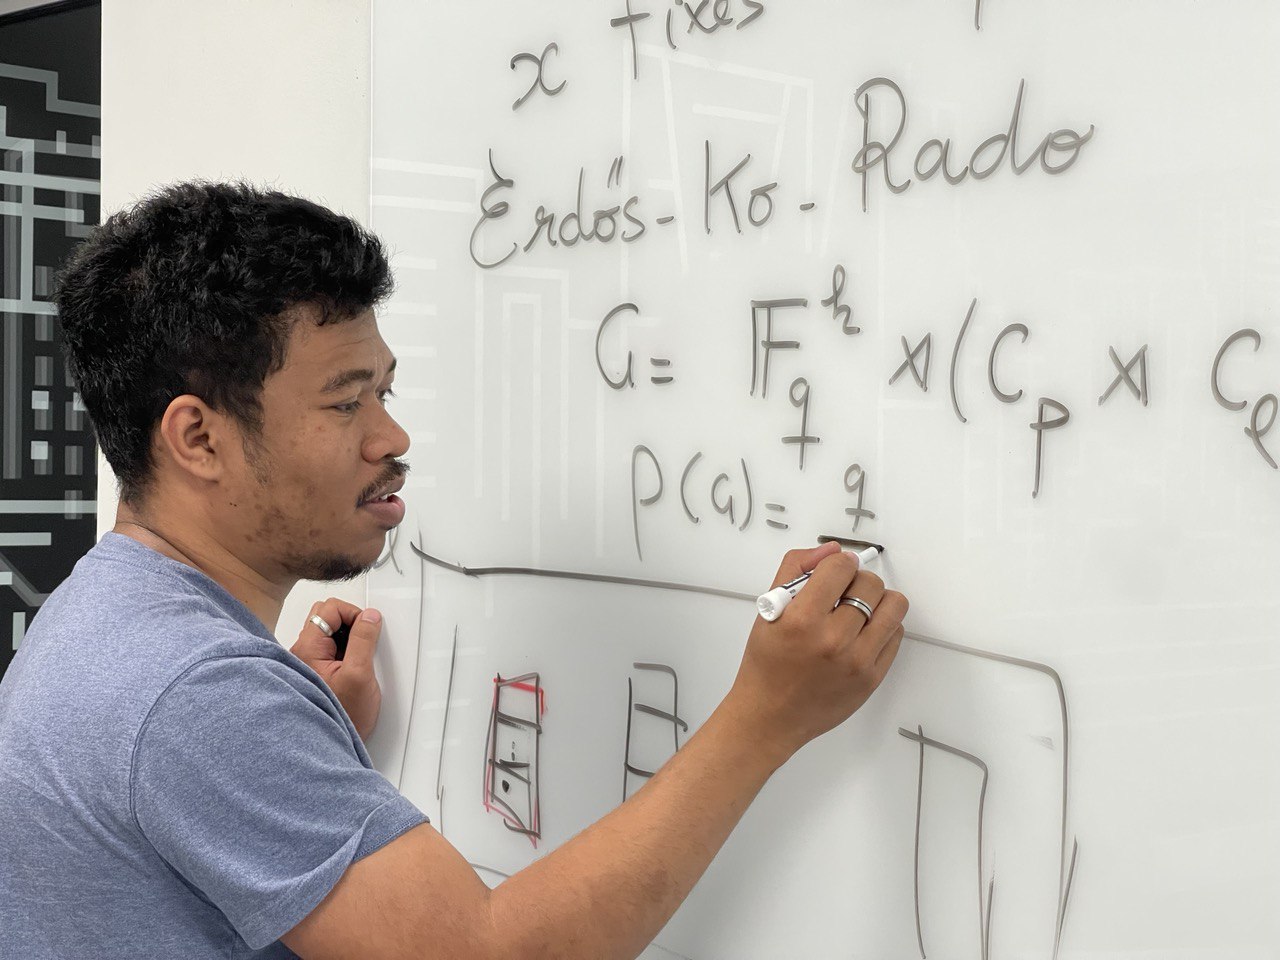 x fixes
Erdős-Ko-Rado
G = 𝔽_q^h ⋊ (C_p ⋊ C_ℓ
ρ(G) = q